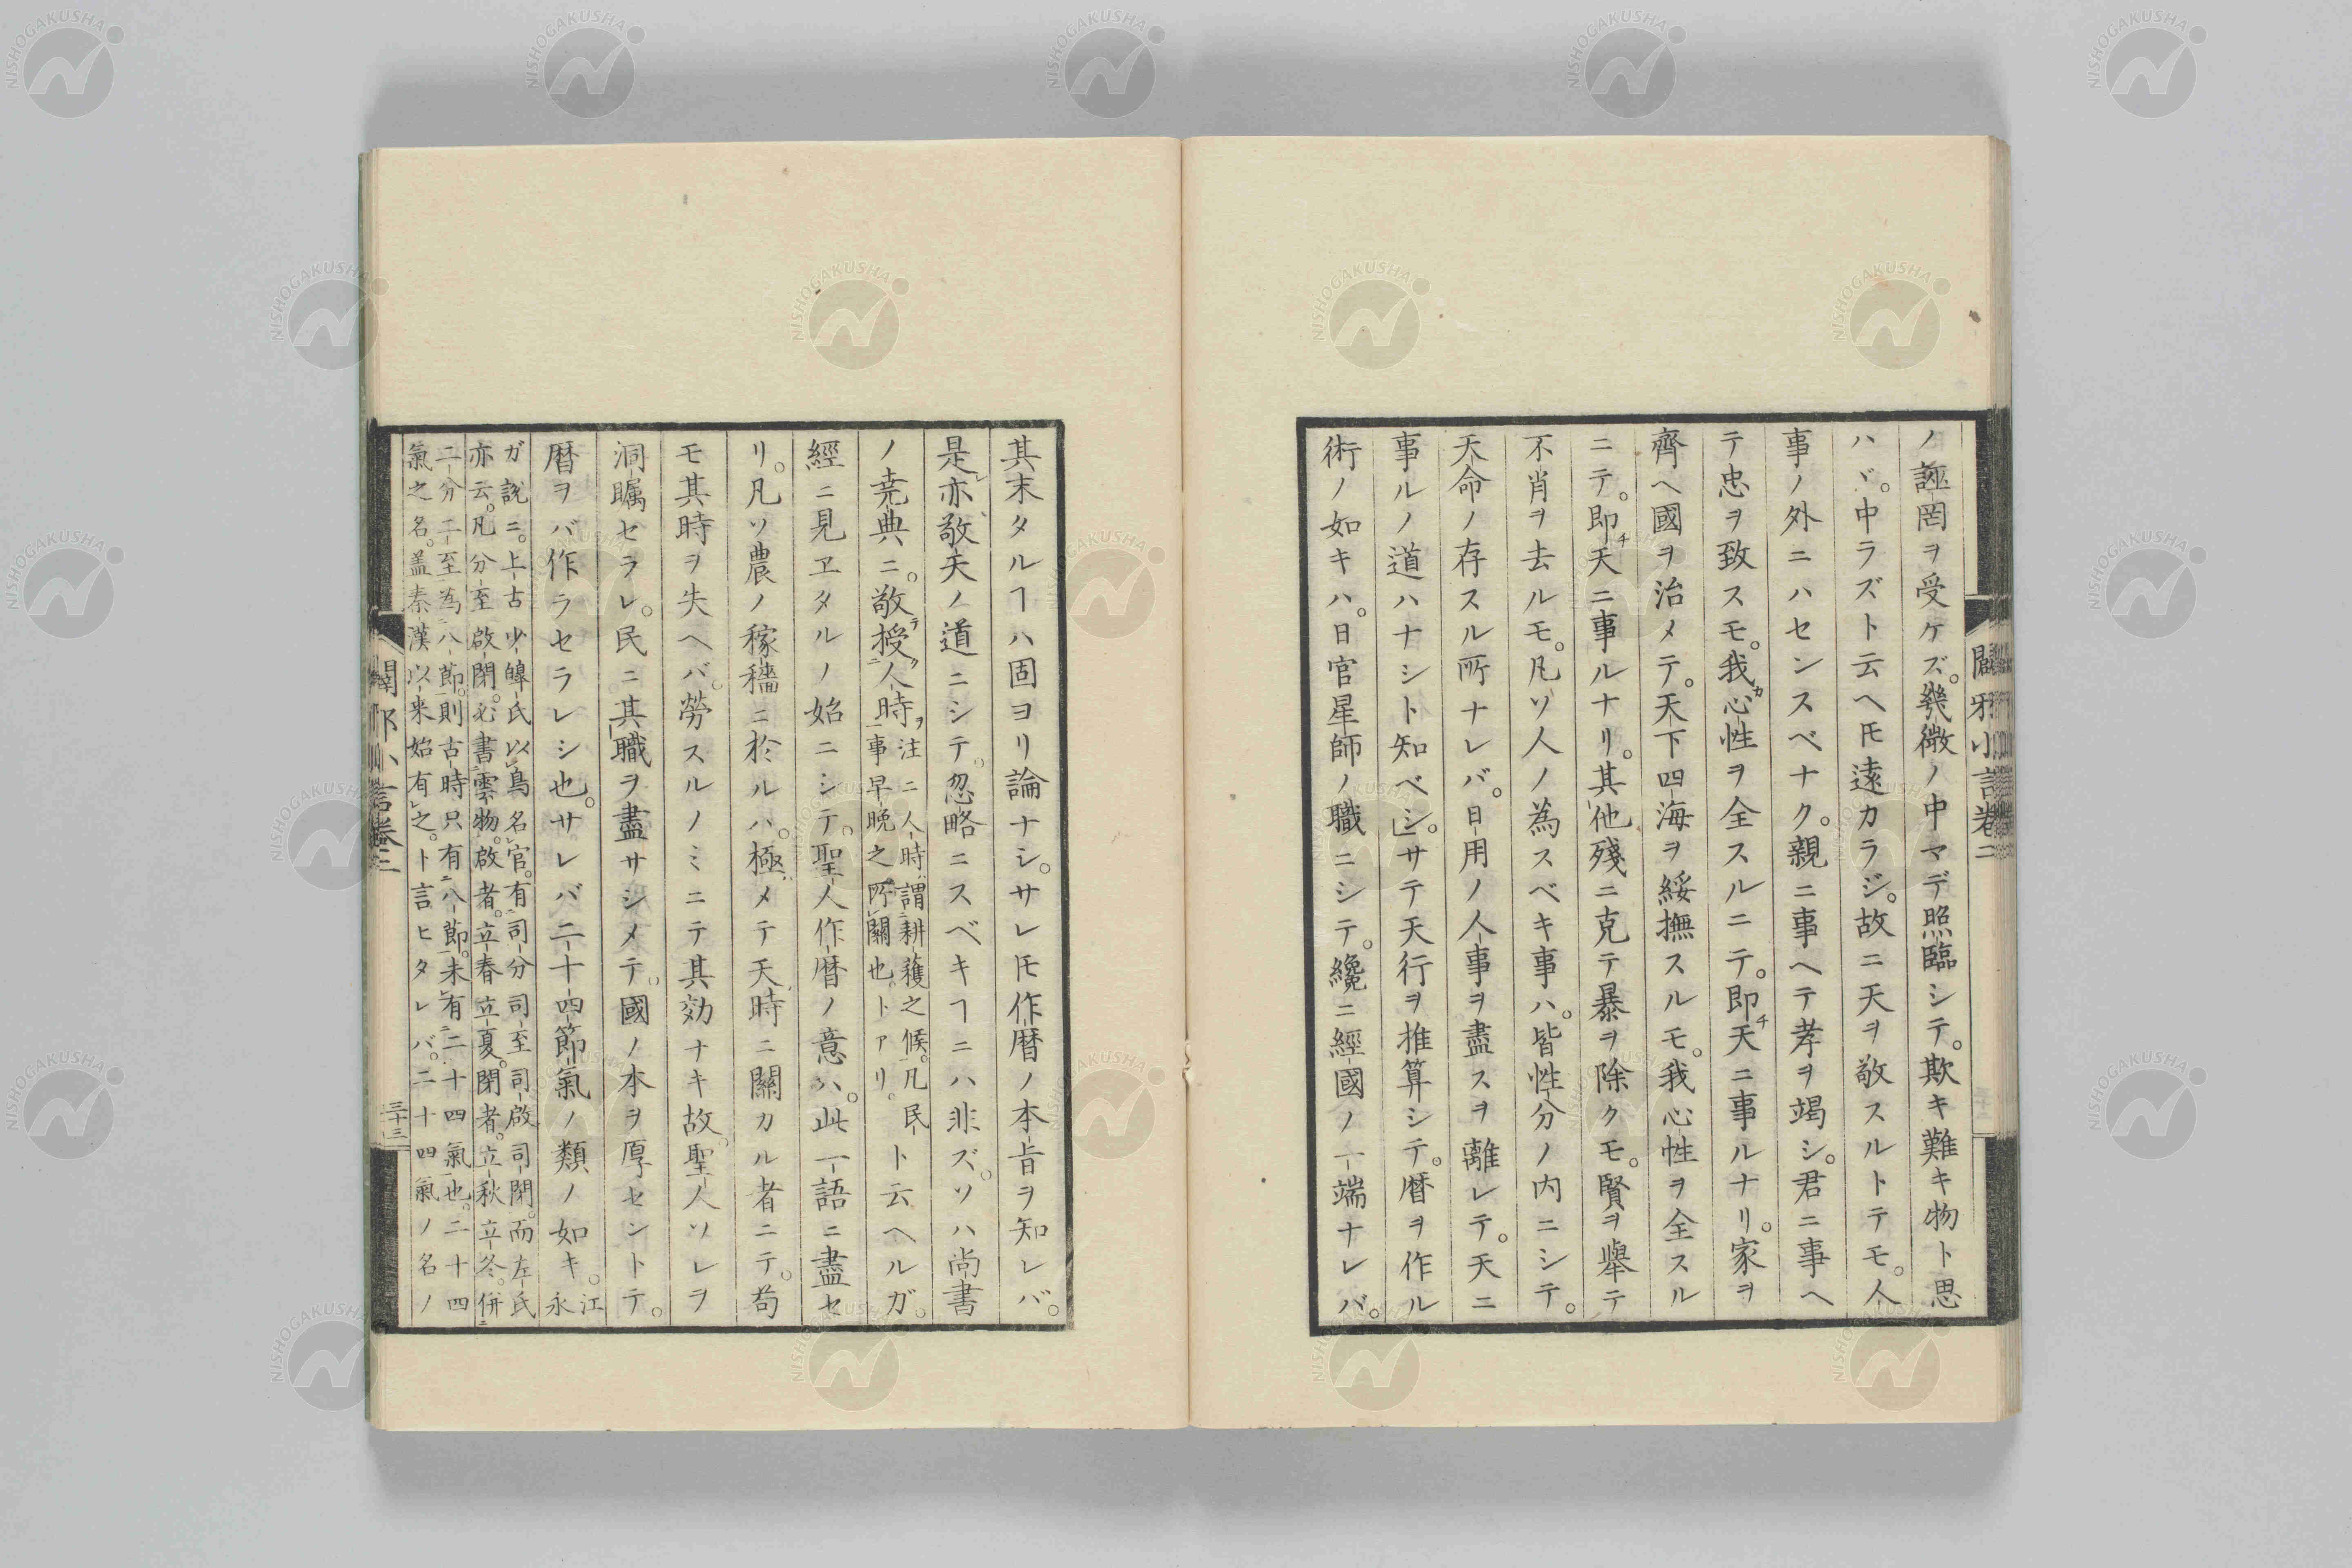 ノ誣罔ヲ受ケズ。幾微ノ中マデ照臨シテ。欺キ難キ物ト思
ハヾ。中ラズト云ヘ𪜈遠カラジ。故ニ天ヲ敬スルトテモ。人
事ノ外ニハセンスベナク。親ニ事ヘテ孝ヲ竭シ。君ニ事ヘ
テ忠ヲ致スモ。我カ心性ヲ全スルニテ。即チ天ニ事ルナリ。家ヲ
齊ヘ國ヲ治メテ。天下四海ヲ綏撫スルモ。我心性ヲ全スル
ニテ。即チ天ニ事ルナリ。其他殘ニ克テ暴ヲ除クモ。賢ヲ舉テ
不肖ヲ去ルモ。凡ソ人ノ為スベキ事ハ。皆性分ノ内ニシテ。
天命ノ存スル所ナレバ。日用ノ人事ヲ盡スヲ離レテ。天ニ
事ルノ道ハナシト知ベシ。」サテ天行ヲ推算シテ。暦ヲ作ル
術ノ如キハ。日官星師ノ職ニシテ。纔ニ經國ノ一端ナレバ。
其末タルヿハ固ヨリ論ナシ。サレ𪜈作暦ノ本旨ヲ知レバ。
是レ亦敬天ノ道ニシテ。忽略ニスベキヿニハ非ズ。ソハ尚書
ノ堯典ニ。敬テ授ク人時ヲ 注ニ人時謂耕穫之候。凡民事早晩之所關也。トアリ。ト云ヘルガ。
經ニ見ヱタルノ始ニシテ。聖人作暦ノ意ハ。此一語ニ盡セ
リ。凡ソ農ノ稼穡ニ於ルハ。極メテ天時ニ關カル者ニテ。苟
モ其時ヲ失ヘバ。勞スルノミニテ其効ナキ故。聖人ソレヲ
洞矚セラレ。民ニ其職ヲ盡サシメテ。國ノ本ヲ厚セントテ。
暦ヲバ作ラセラレシ也。サレバ二十四節氣ノ類ノ如キ。江永
ガ説ニ。上古少皞氏以鳥名官。有司分司至司啟司閉。而左氏
亦云。凡分至啟閉。必書雲物。啟者。立春立夏。閉者。立秋立冬。併
二分二至為八節。則古時只有八節。未有二十四氣也。二十四
氣之名。蓋秦漢以来始有之。ト言ヒタレバ。二十四氣ノ名ノ
闢邪小言卷二
闢邪小言卷三
三十三
NISHOGAKUSHA